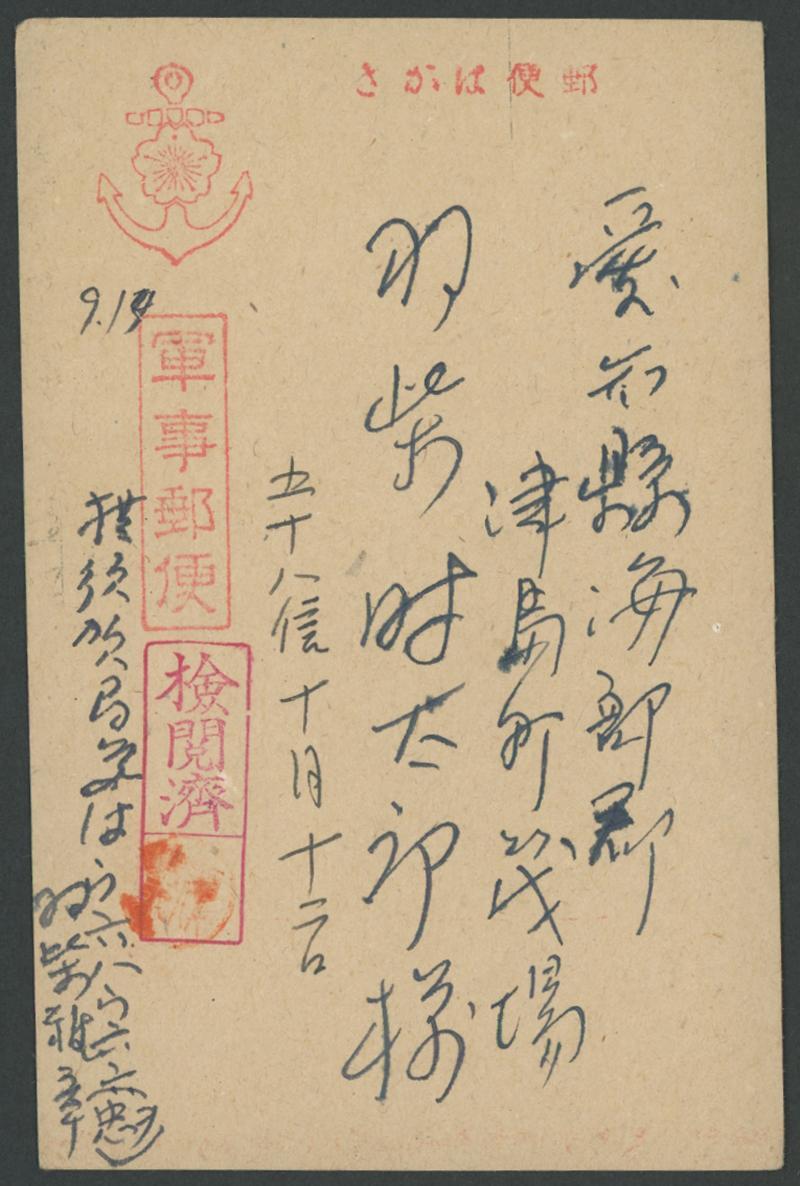 郵便はがき
愛知縣海部郡
津島町筏場
羽柴時太郎様
五十八信 十月十二日
軍事郵便
検閲済
9.14
横須賀局気付ウ六八ウ六六
羽柴雅章